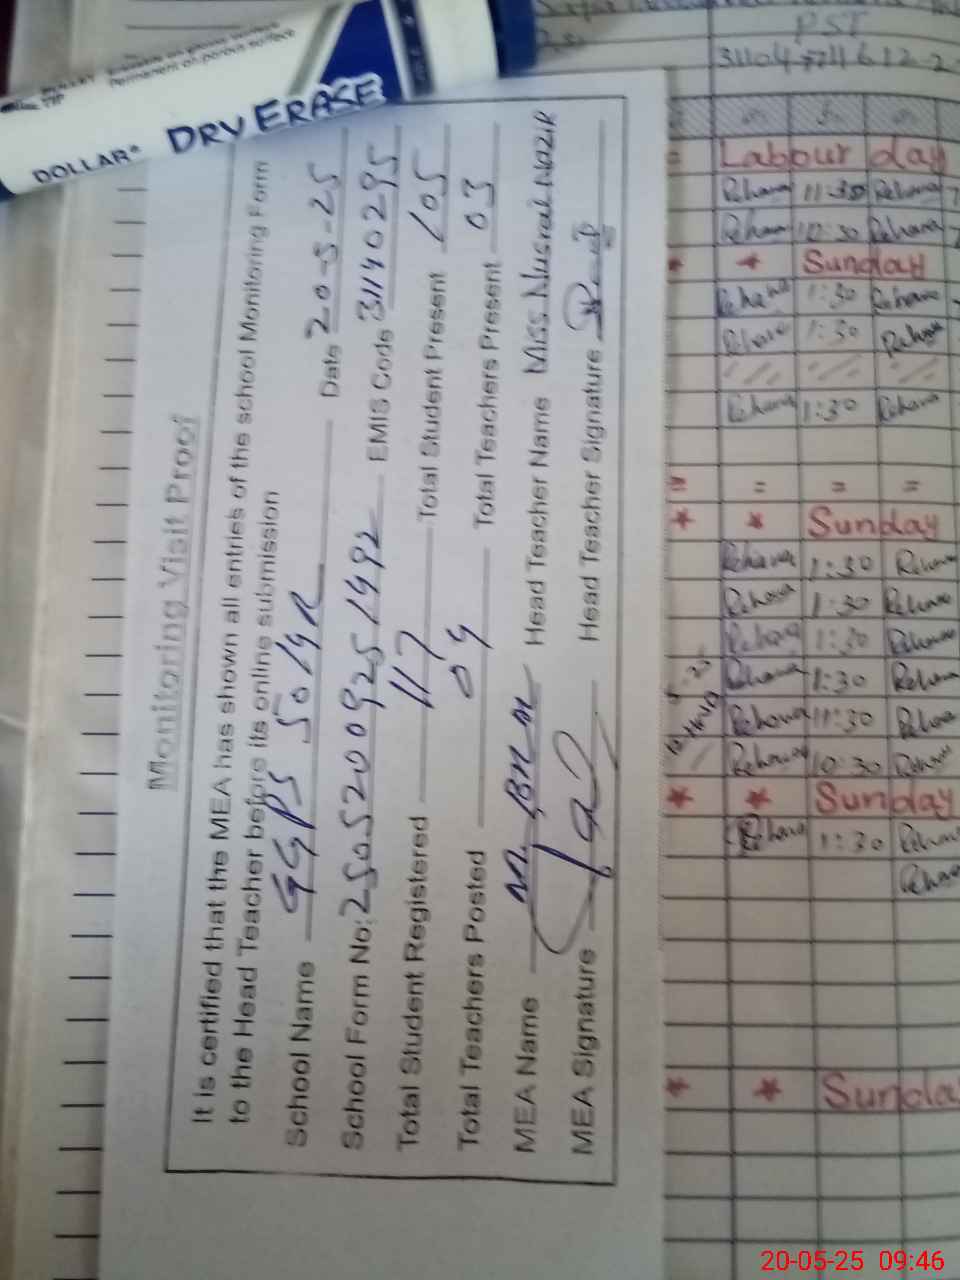 DOLLAR® DRY ERASE
Monitoring Visit Proof
It is certified that the MEA has shown all entries of the school Monitoring Form
to the Head Teacher before its online submission
School Name GGPS 50/4R Date 20-5-25
School Form No: 25052009251492 EMIS Code 31140295
Total Student Registered 117 Total Student Present 105
Total Teachers Posted 04 Total Teachers Present 03
MEA Name Head Teacher Name Miss Nusrat Nazir
MEA Signature Head Teacher Signature
PST
Labour day
Rehana 11:30 Rehana
Rehana 10:30 Rehana
* * Sunday
Rehana 1:30 Rehana
Rehana 1:30 Rehana
Rehana 1:30 Rehana
= = = =
* * Sunday
Rehana 1:30 Rehana
Rehana 1:30 Rehana
Rehana 1:30 Rehana
Rehana 1:30 Rehana
Rehana 11:30 Rehana
Rehana 10:30 Rehana
* * Sunday
Rehana 1:30 Rehana
Rehana
* * Sunda
20-05-25 09:46